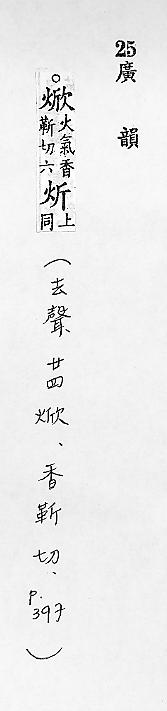 25廣韻
○焮火氣香靳切六炘上同（去聲廿四焮、香靳切、p.397）